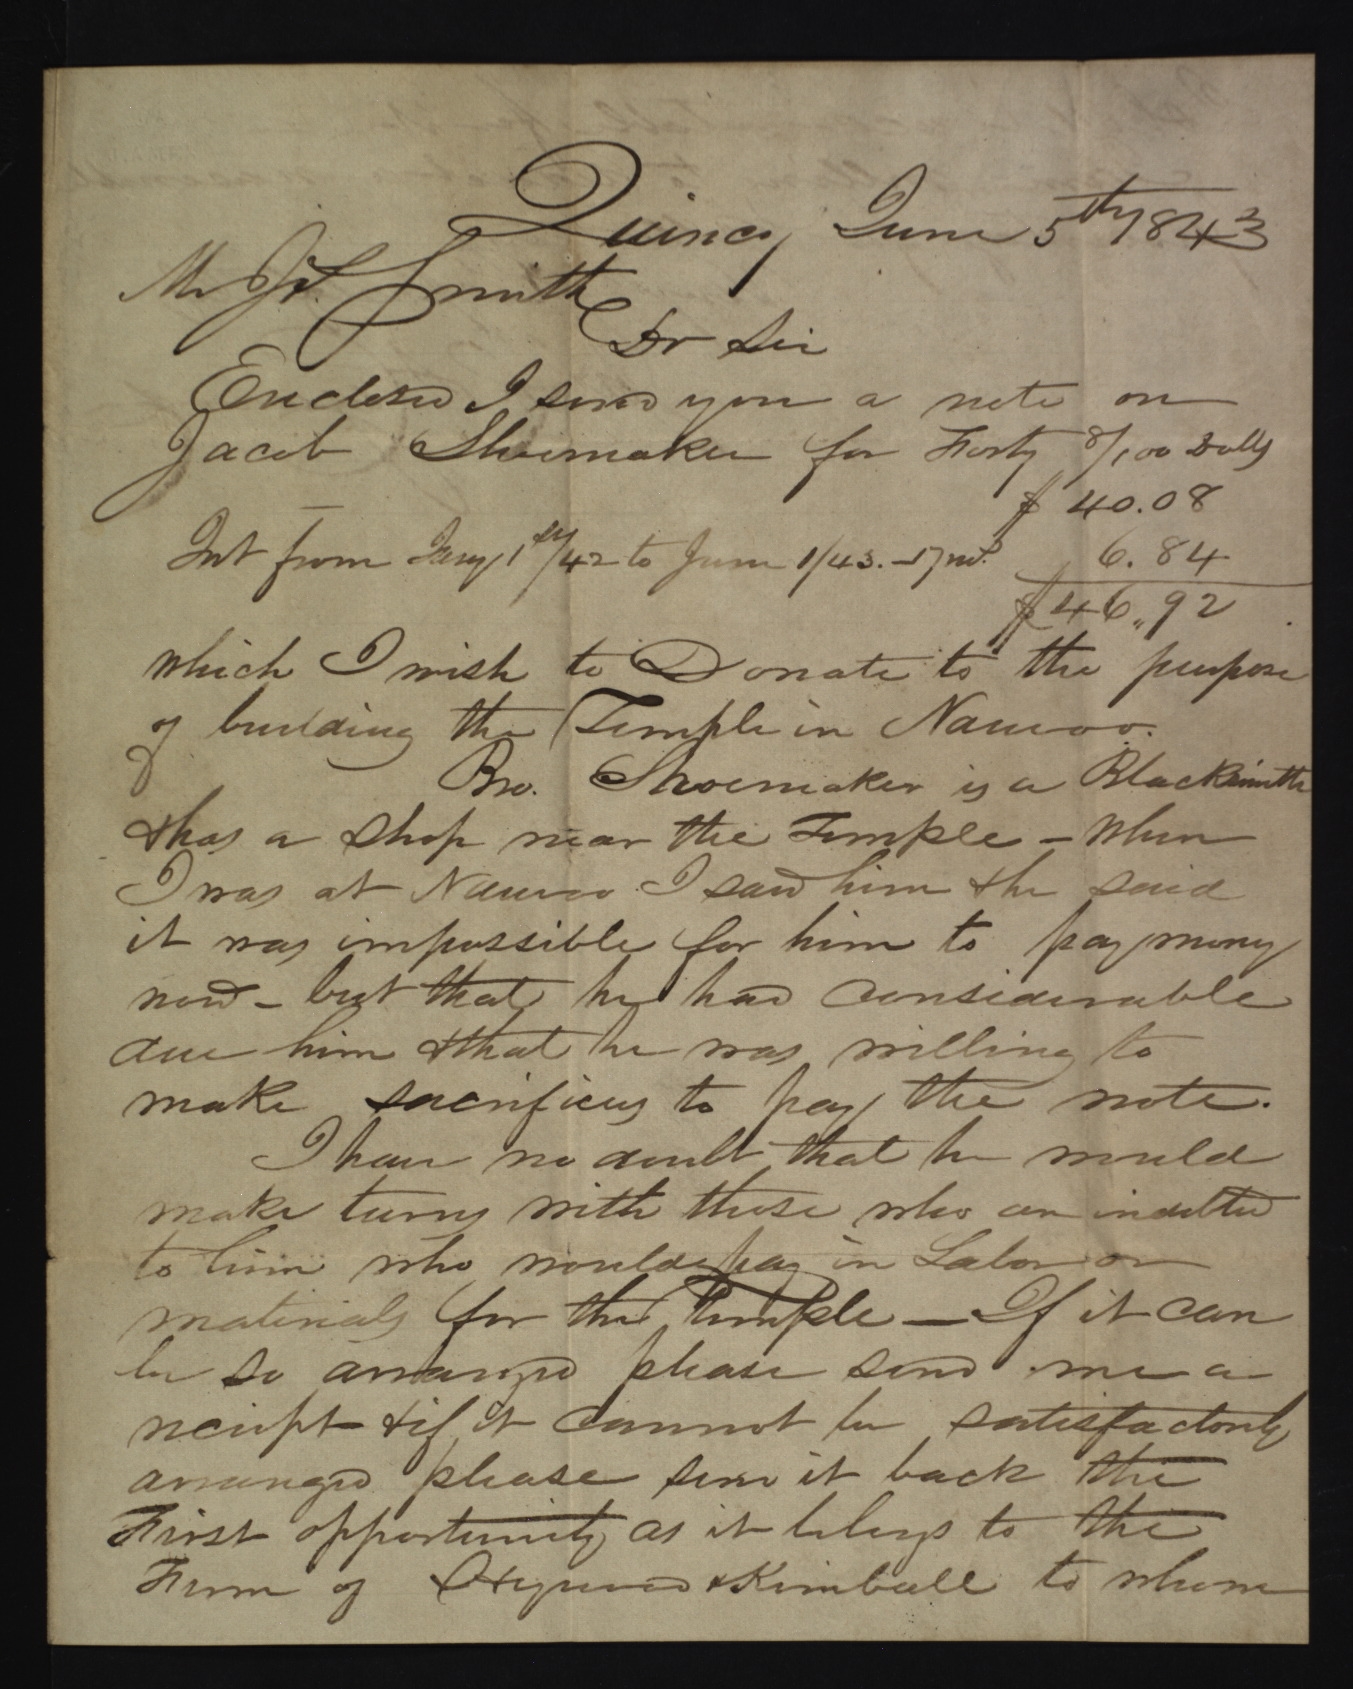 Quincy June 5th 1843
Mr Js. Smith
Dr Sir
Enclosed I send you a note on
Jacob Shoemaker for Forty 8/100 Dolls
$ 40.08
Int from Jany 1st/42 to June 1/43. - 17 mo. 6.84
$ 46,,92
which I wish to Donate to the purpose
of building the Temple in Nauvoo.
Bro. Shoemaker is a Blacksmith
& has a shop near the Temple - When
I was at Nauvoo I saw him & he said
it was impossible for him to pay money
now - but that he had considerable
due him & that he was willing to
make sacrifices to pay the note.
I have no doubt that he would
make turns with those who are indebted
to him who would pay in Labor or
materials for the Temple — If it can
be so arranged please send me a
reciept & if it cannot be satisfactorily
arranged please send it back the
First opportunity as it belongs to the
Firm of & Kimball to whom